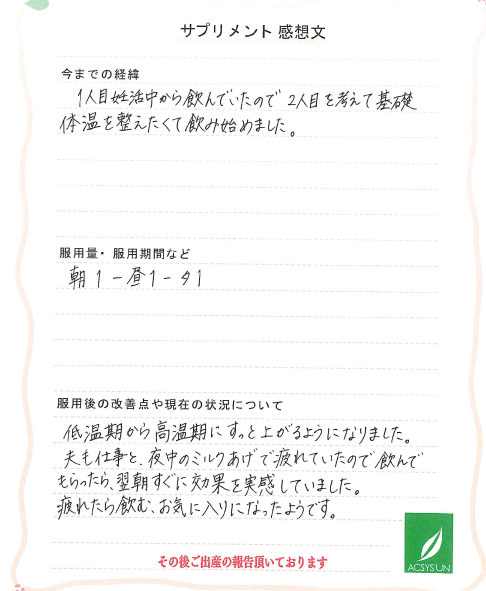 サプリメント 感想文
今までの経緯
1人目妊活中から飲んでいたので 2人目を考えて基礎
体温を整えたくて飲み始めました。
服用量・服用期間など
朝1-昼1-夕1
服用後の改善点や現在の状況について
低温期から高温期にすっと上がるようになりました。
夫も仕事と、夜中のミルクあげで疲れていたので飲んで
もらったら、翌朝すぐに効果を実感していました。
疲れたら飲む、お気に入りになったようです。
その後ご出産の報告頂いております
ACSYSUN